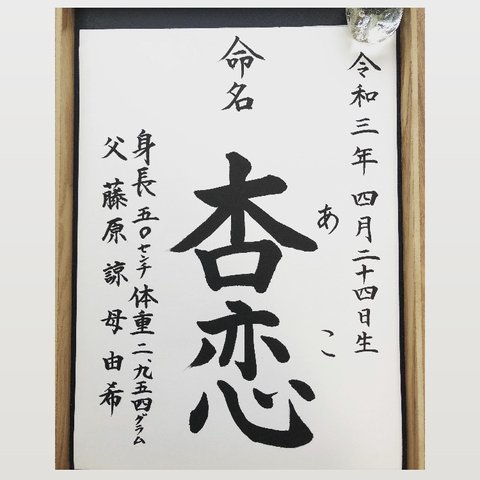 令和三年四月二十四日生
命名
杏恋
あこ
身長五〇センチ体重二、九五四グラム
父藤原諒母由希